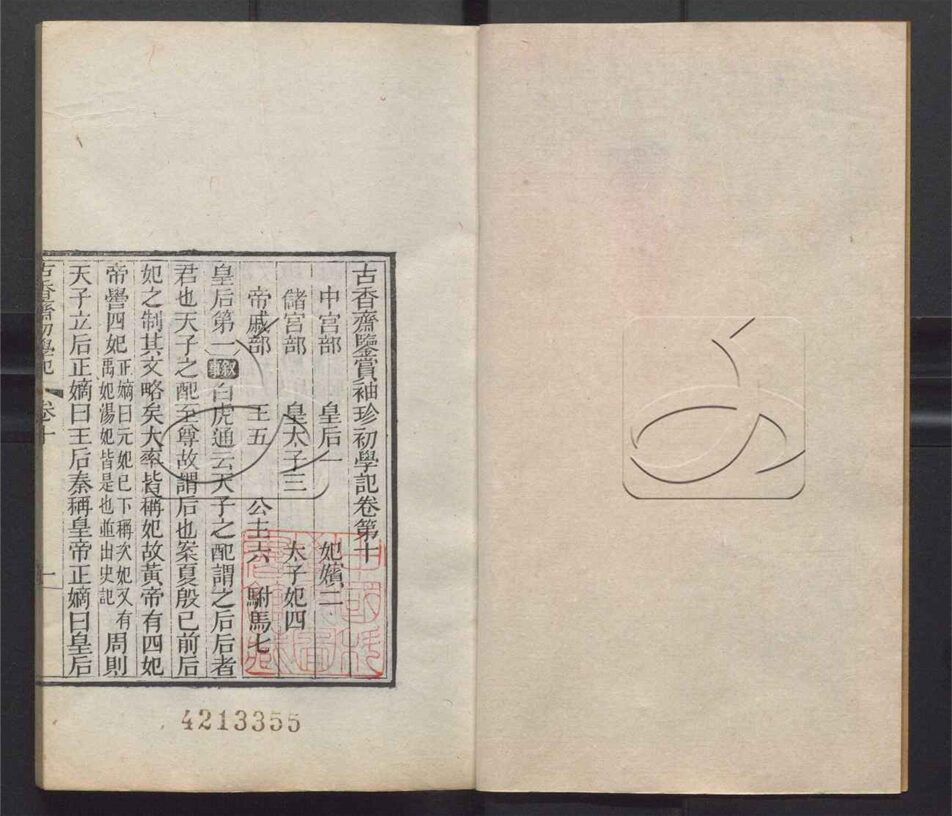 古香齋鑒賞袖珍初學記卷第十
中宮部 皇后一 妃嬪二
儲宮部 皇太子三 太子妃四
帝戚部 王五 公主六 駙馬七
皇后第一 敘事 白虎通云天子之配謂之后后者
君也天子之配至尊故謂后也案夏殷已前后
妃之制其文略矣大率皆稱妃故黃帝有四妃
帝嚳四妃 正嫡曰元妃已下稱次妃又有禹妃湯妃皆是也並出史記 周則
天子立后正嫡曰王后秦稱皇帝正嫡曰皇后
古香齋初學記 卷十 一
4213355